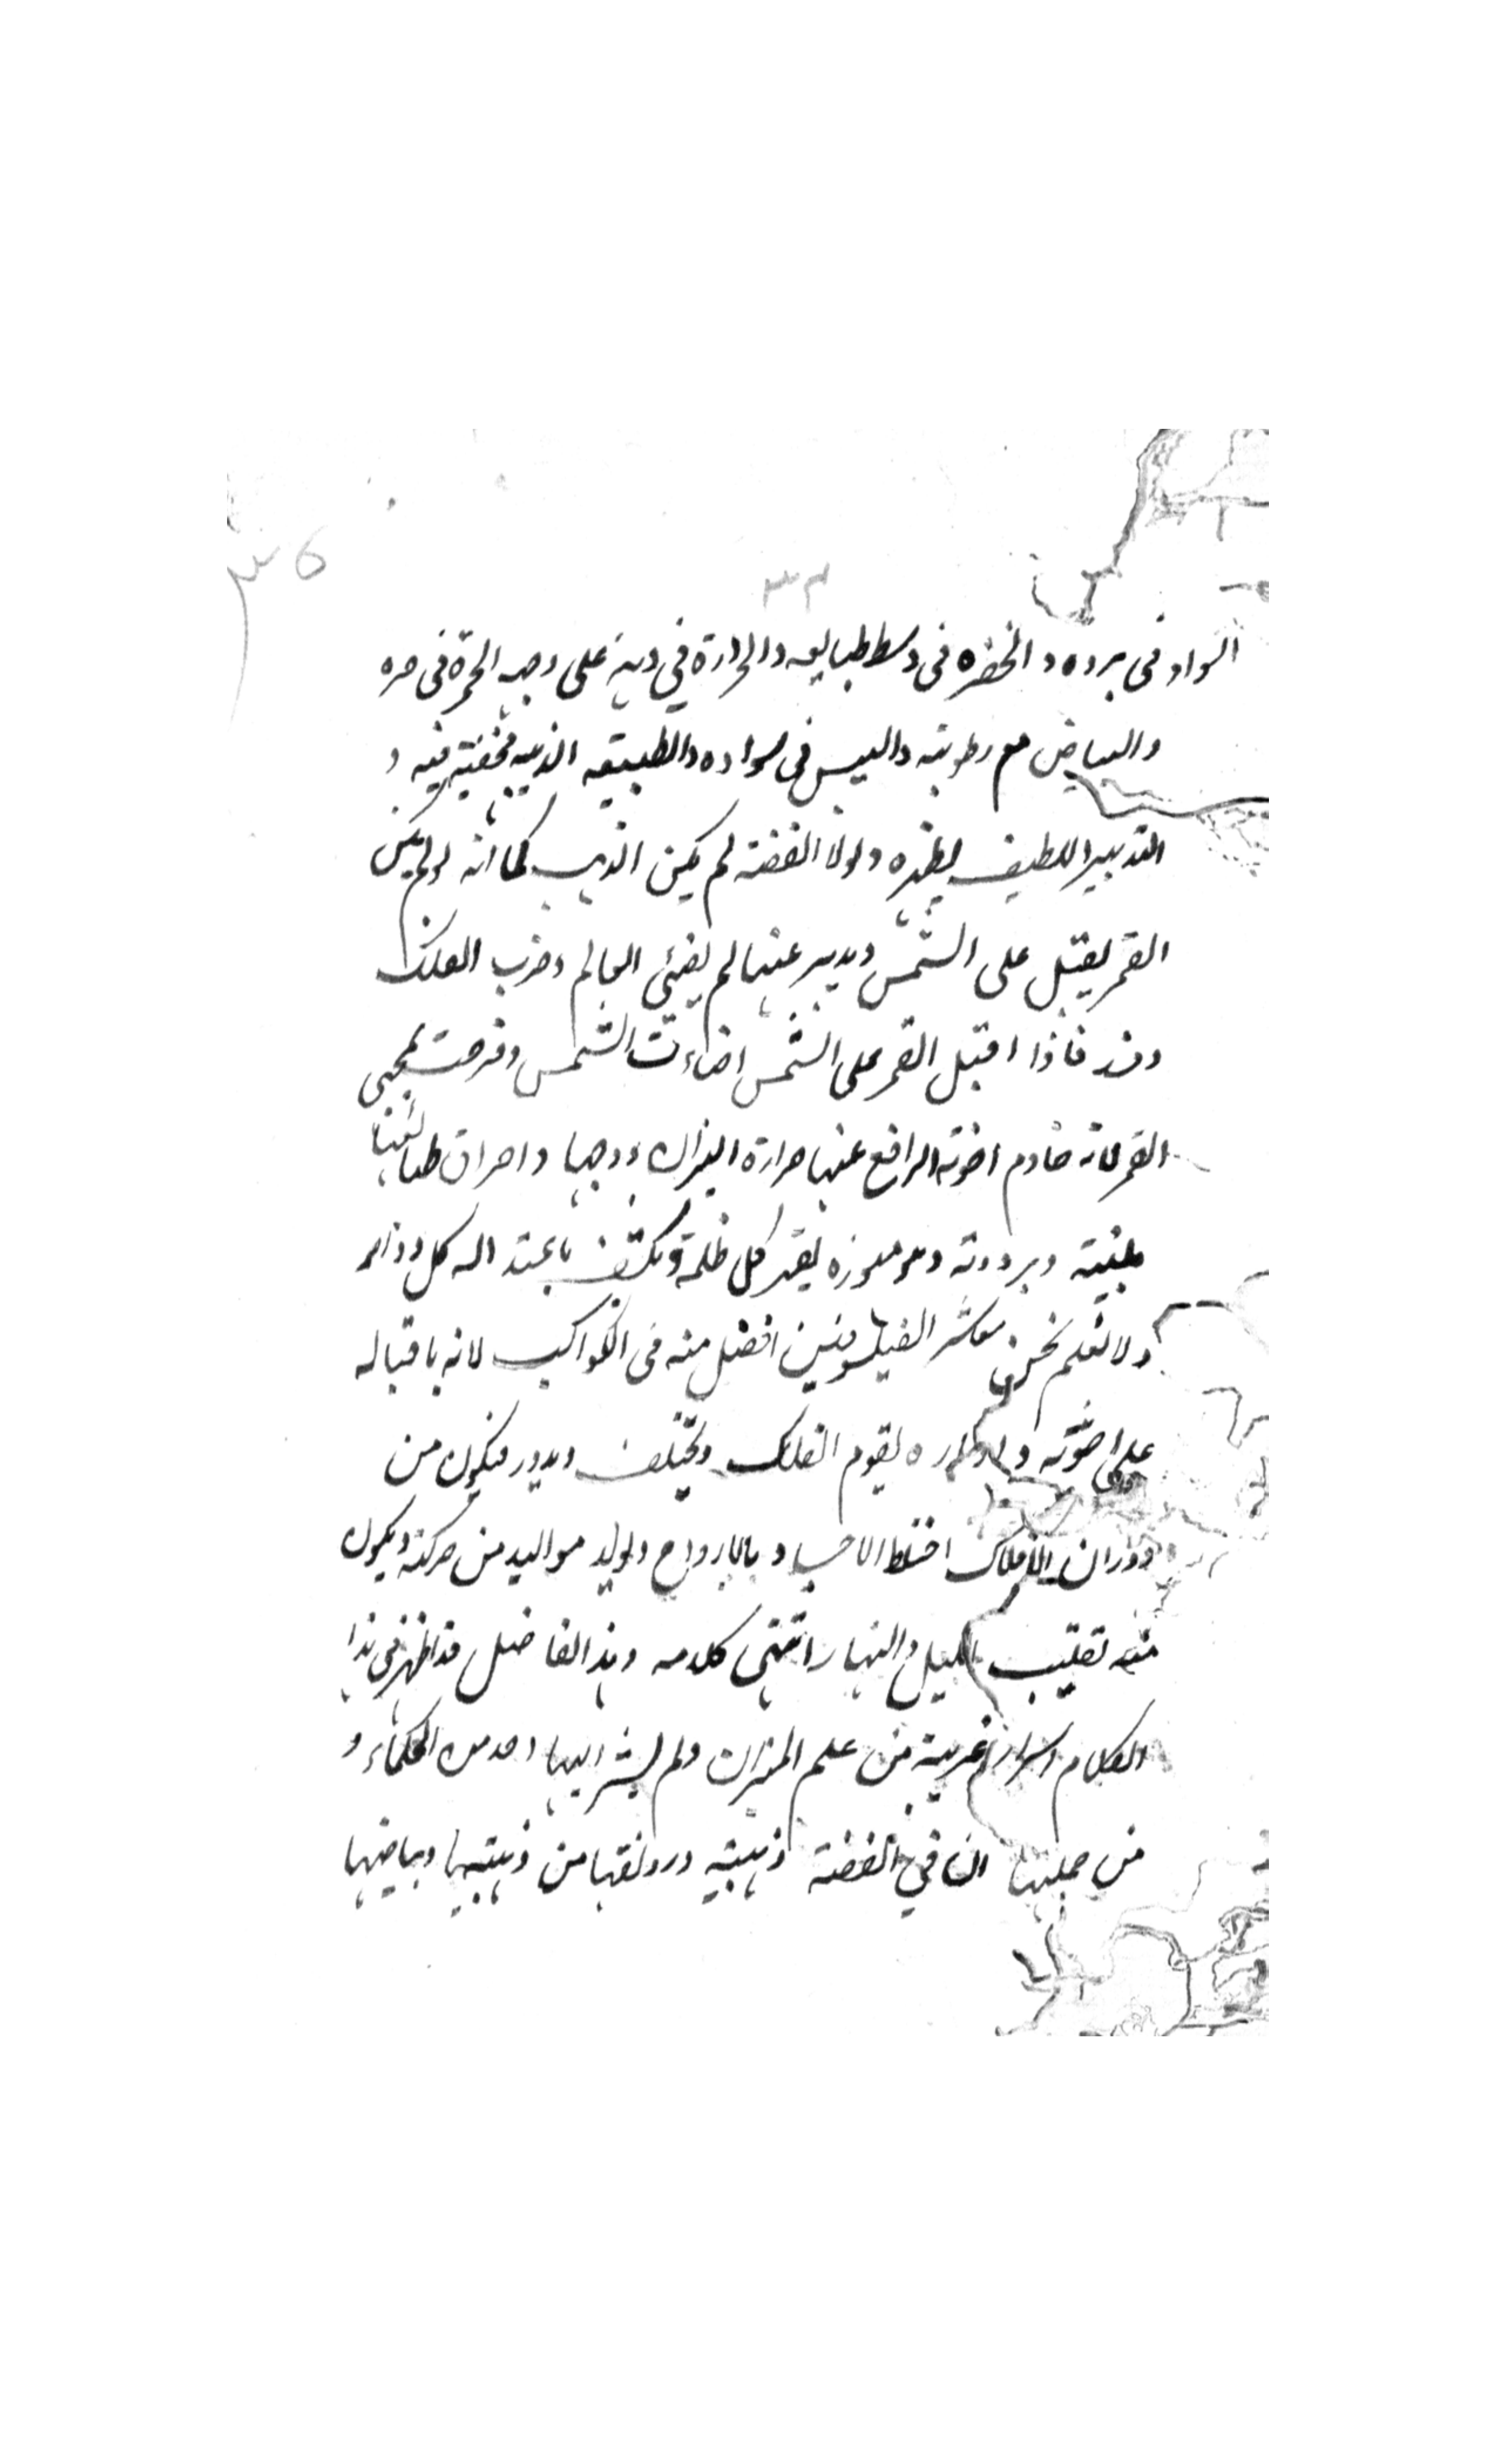 ۳۶
۳۴
السواد فى برده و الخضره فى وسط طبايعه والحرارة فى دينه على وجه الحمرة فى حره
والبياض مع رطوبته واليبس فى سواده والطبيعه الذهبيه مخفيته فيه و
التدبير اللطيف يظهره ولولا الفضة لم يكن الذهب كما انه لو لم يكن
القمر يقبل على الشمس ويدبر عنها لم يضئى العالم وخرب الفلك
وفسد فاذا اقبل القمر على الشمس اضاءت الشمس وفرحت بمجى
القمر لانه خادم اخوته الرافع عنها حرارة النيران ووهجها واحراق طبائعها
بلينه وبرودته ونوره يقهر كل ظلمة ويكشف باعتداله كل
ولا نعلم نحن معاشر الفيلسوفين افضل منه فى الكواكب لانه باقباله
على اخوته وادباره يقوم الفلك ويختلف ويدور فيكون من
دوران الافلاك اختلط الاجساد بالارواح وتولد مواليد من حركته ويكون
منه تقليب الليل والنهار انتهى كلامه وهذا الفاضل قد اظهر فى هذا
الكلام اسرار غريبة من علم الميزان ولم يشر اليها احد من الحكماء و
من جملتها ان فى الفضة ذهبية ورونقها من ذهبيتها وبياضها